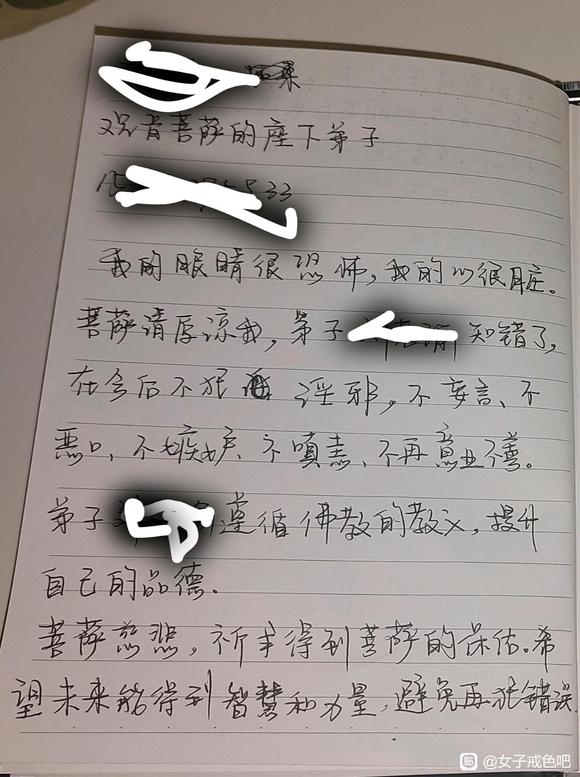 观音菩萨的座下弟子
33
我的眼睛很恐怖,我的心很脏。
菩萨请原谅我,弟子 知错了,
在今后不犯 淫邪,不妄言、不
恶口,不嫉妒、不嗔恚、不再意业不善。
弟子 遵循佛教的教义,提升
自己的品德.
菩萨慈悲,祈求得到菩萨的保佑.希
望未来能得到智慧和力量,避免再犯错误.
贴 @女子戒色吧